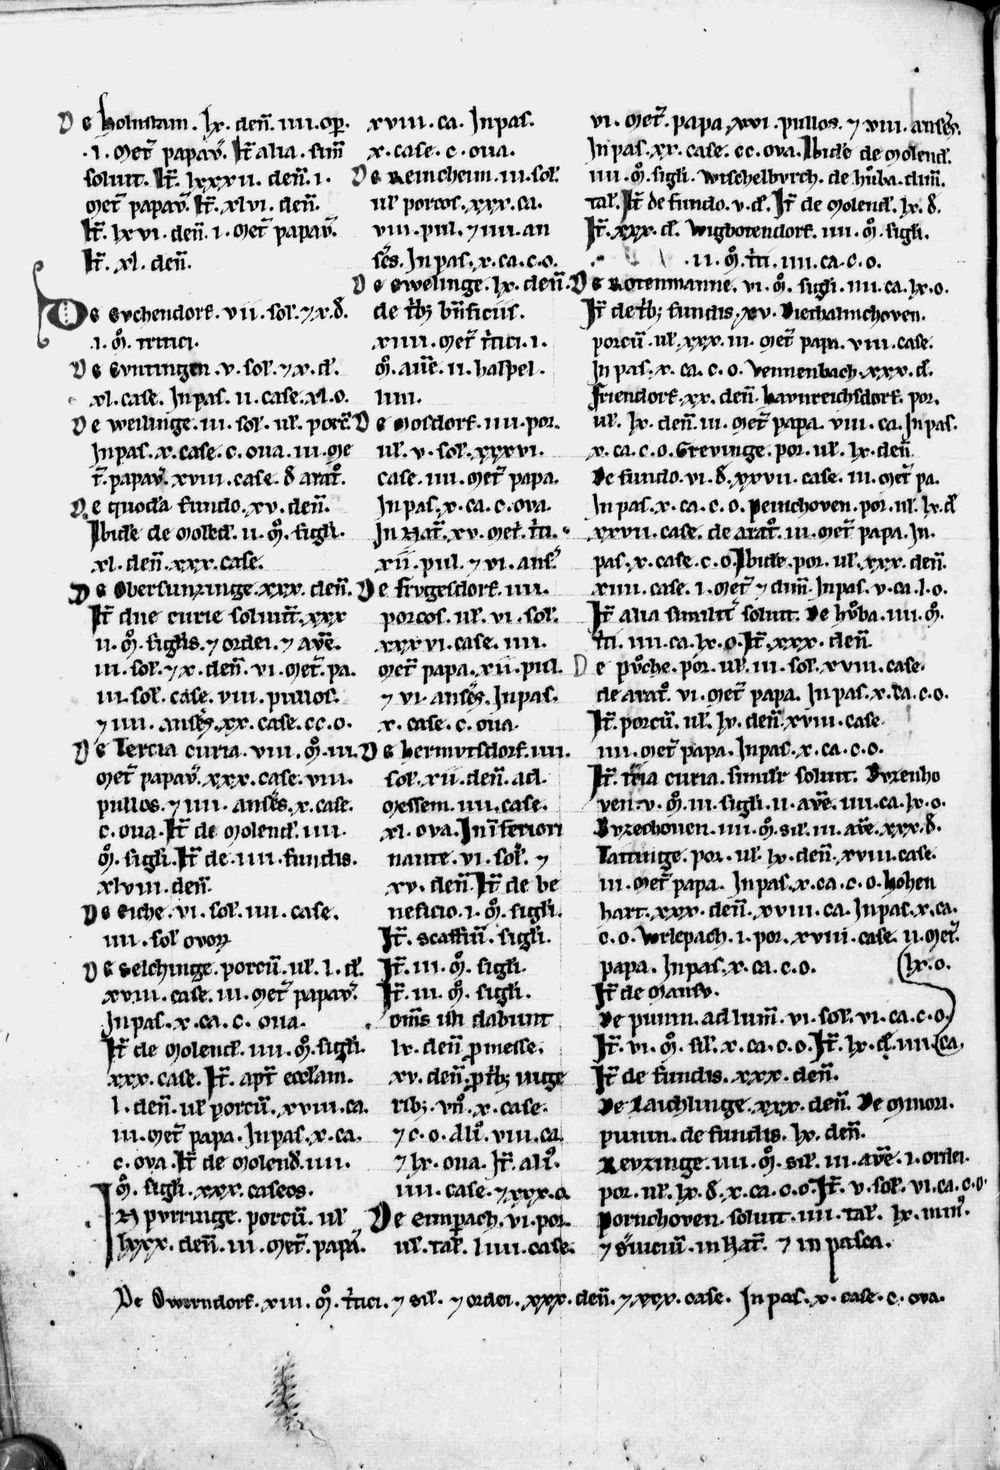 De holnstain. lx. den̄. iiii. op̄.
.i. met̄ papav̄. It̄ alia. sim̄
soluit. It̄. lxxxii. den̄. i.
met̄ papav̄. It̄. xlvi. den̄.
It̄. lxvi. den̄. i. met̄ papav̄.
It̄. xl. den̄.
De Evchendorf. vii. sol̄. ⁊ x. d̄.
.i. m̊. tritici.
De Evntingen. v. sol̄. ⁊ x. d̄.
xl. case. In pas. ii. case. xl. o.
De Weilinge. iii. sol̄. ul̄ porc̄
In pas. x. case. c. oua. iii. me
t̄. papav̄. xviii. case. d̄ arat̊.
De quoda fundo. xv. den̄.
Ibidē de moled̄. ii. m̊. sigli.
xl. den̄. xxx. case.
De Obersunzinge. xxx. den̄.
It̄ due curie soluūt. xxx
ii. m̊. siglis. ⁊ ordei. ⁊ avē.
iii. sol̄. ⁊ x. den̄. vi. met̄. pa.
iii. sol̄. case. viii. pullos.
⁊ iiii. anses̄. xx. case. cc. o.
De Tercia curia. viii. m̊. iii.
met̄ papav̄. xxx. case. viii.
pullos. ⁊ iiii. anses̄. x. case.
c. oua. It̄ de molend̄. iiii.
m̊. sigli. It̄ de. iiii. fundis.
xlviii. den̄.
De Eiche. vi. sol̄. iiii. case.
iiii. sol̄ ovoꝝ
De Selchinge. porcū. ul̄. l. d̄.
xviii. case. iii. met̄ papav̄.
In pas. x. ca. c. oua.
It̄ de molend̄. iiii. m̊. sigli.
xxx. case. It̄. apt̄ eccl̄am.
l. den̄. ul̄ porcū. xviii. ca.
iii. met̄ papa. In pas. x. ca.
c. ova. It̄ de molend̄. iiii.
m̊. sigli. xxx. caseos.
In pvrringe. porcū. ul̄
lxxx. den̄. iii. met̄. papā.
xviii. ca. In pas.
x. case. c. oua.
De Reincheim. iii. sol̄.
ul̄ porcos. xxx. ca.
viii. pul. ⁊ iiii. an
ses̄. In pas. x. ca. c. o.
De Ewelinge. lx. den̄.
de t̄bꝫ bn̄ficiis.
xiiii. met̄ t̄tici. i.
m̊. auē. ii. haspel.
iiii.
De Mosdorf. iiii. por.
ul̄. v. sol̄. xxxvi.
case. iiii. met̄ papa.
In pas. x. ca. c. ova.
In Nat̄. xv. met̄. t̄ti.
xii. pul. ⁊ vi. ans̄.
De frvgesdorf. iiii.
porcos. ul̄. vi. sol̄.
xxxvi. case. iiii.
met̄ papa. xii. pul.
⁊ vi. anses̄. In pas.
x. case. c. oua.
De hermvtsdorf. iiii.
sol̄. xii. den̄. ad
messem. iiii. case.
xl. ova. In īferiori
naute. vi. sol̄. ⁊
xv. den̄. It̄ de be
neficio. i. m̊. sigli.
It̄. scaffiū. sigli.
It̄. iii. m̊. sigli.
It̄. iii. m̊. sigli.
om̄s isti dabunt
lx. den̄. p messe.
xv. den̄. p t̄bꝫ iuge
ribꝫ. vn̊. x. case.
⁊ c. o. ali̊. viii. ca.
⁊ lx. oua. It̄. ali̊.
iiii. case. ⁊ xxx. o.
De Einpach. vi. por.
ul̄. tal̄. liiii. case.
vi. met̄. papa. xvi. pullos. ⁊ viii. anses̄.
In pas. xx. case. cc. ova. Ibidē de molend̄.
iiii. m̊. sigli. Wischelbvrch. de hůba. dim̄.
tal̄. It̄ de fundo. v. d̄. It̄ de molend̄. lx. d̄.
It̄. xxx. d̄. Wigbotendorf. iiii. m̊. sigli.
ii. m̊. t̄ti. iiii. ca. c. o.
De Rotenmanne. vi. m̊. sigli. iiii. ca. lx. o.
It̄ de t̄bꝫ fundis. xv. Diechalmchoven.
porcū. ul̄. xxx. iii. met̄ papa. viii. case.
In pas. x. ca. c. o. Vennenbach. xxx. d̄.
Friendorf. xx. den̄. haynreichsdorf. por.
ul̄. lx. den̄. iii. met̄ papa. viii. ca. In pas.
x. ca. c. o. Grevinge. por. ul̄. lx. den̄.
De fundo. vi. d̄. xxvii. case. iii. met̄ pa.
In pas. x. ca. c. o. Peinchoven. por. ul̄. lx. d̄
xxvii. case. de arat̊. iii. met̄ papa. In.
pas. x. case. c. o. Ibidē. por. ul̄. xxx. den̄.
xiiii. case. i. met̄ ⁊ dim̄. In pas. v. ca. l. o.
It̄ alia similit̄ soluit. De hůba. iiii. m̊.
t̄ti. iiii. ca. lx. o. It̄. xxx. den̄.
De půche. por. ul̄. iii. sol̄. xviii. case.
de arat̊. vi. met̄ papa. In pas. x. ca. c. o.
It̄. porcū. ul̄. lx. den̄. xviii. case.
iiii. met̄ papa. In pas. x. ca. c. o.
It̄. t̄cia curia. simil̄r soluit. Evzenho
ven. v. m̊. iii. sigli. ii. avē. iiii. ca. lx. o.
Evzechouen. iiii. m̊. sil̄. iii. avē. xxx. d̄.
Tattinge. por. ul̄. lx. den̄. xviii. case.
iii. met̄ papa. In pas. x. ca. c. o. hohen
hart. xxx. den̄. xviii. ca. In pas. x. ca.
c. o. Wrlepach. i. por. xviii. case. ii. met̄.
papa. In pas. x. ca. c. o. lx. o.
It̄ de Mansv.
De pirnn. ad lum̄. vi. sol̄. vi. ca. c. o.
It̄. vi. m̊. sil̄. x. ca. c. o. It̄. lx. d̄. iiii. ca.
It̄ de fundis. xxx. den̄.
De Laichlinge. xxx. den̄. De minori.
pirnn. de fundis. lx. den̄.
Revzinge. iiii. m̊. sil̄. iii. avē. i. ordei.
por. ul̄. lx. d̄. x. ca. c. o. It̄. v. sol̄. vi. ca. c. o
Pornchoven. soluit. iiii. tal̄. lx. min̄.
⁊ s̄uiciū. in Nat̄. ⁊ in pasca.
De Owerndorf. xiii. m̊. t̄tici. ⁊ sil̄. ⁊ ordei. xxx. den̄. ⁊ xxx. case. In pas. x. case. c. ova.